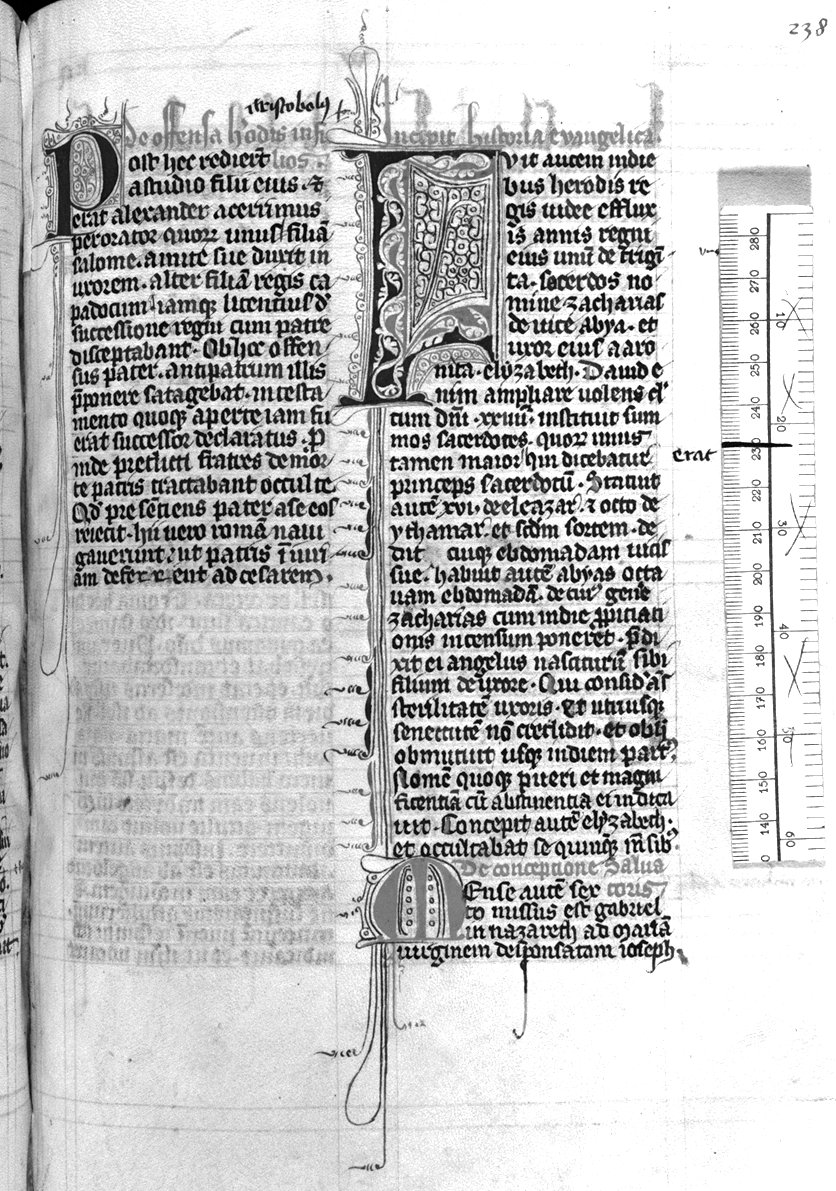 238
Aristobolꝰ
De offensa h'odis in fi
lios.
Post hec rediert̄
a studio filii eius ⁊
erat alexander acerrimus
perorator quoꝝ unus filiā
salome. amite sue duxit in
uxorem. alter filiā regis ca
padocum. iamqꝫ licentius d'
successione regni cum patre
disceptabant. Ob hec offen
sus pater. antipatrum illis
p̄ponere satagebat. in testa
mento quoqꝫ aperte iam fu
erat successor declaratus. P
inde p̄electi fratres de mor
te patris tractabant occulte
Qd̓ presenciens pater a se eos
reiecit. hii uero romā naui
gauerunt. ut patris iniuri
am deferrent ad cesarem.
Incipit historia euangelica.
Fuit autem in die
bus herodis re
gis iudee efflux
is annis regni
eius unū de trigī
ta. sacerdos no
mine zacharias
de uice abya. et
uxor eius aaro
nita. elyzabeth. Dauid e
nim ampliare uolens cl'
tum dn̄i. xxiiii. instituit sum
mos sacerdotes. quoꝝ unus
tamen maior qui dicebatur
erat
princeps sacerdotū. Statuit
autē xvi. de eleazar. ⁊ octo de
ythamar. et scdm̄ sortem. de
dit cuiqꝫ ebdomadam uicis
sue. habuit autē abyas octa
uam ebdomadā. de cuiꝰ gen̄e
zacharias cum in die ꝓpiciati
onis incensum poneret. p̄di
xit ei angelus nasciturū sibi
filium de uxore. Qui consid'ās
sterilitatē uxoris. Et utriusqꝫ
senectutē nō credidit. et obi
obmutuit usqꝫ in diem partꝰ.
Nomē quoqꝫ pueri et magni
ficentiā cū abstinentia ei indica
uit. Concepit autē elyzabeth.
et occultabat se quinqꝫ mn̄sibꝰ.
De conceptione salua
toris
Mense autē sex
to missus est gabriel
in nazareth ad mariā
uirginem desponsatam ioseph.